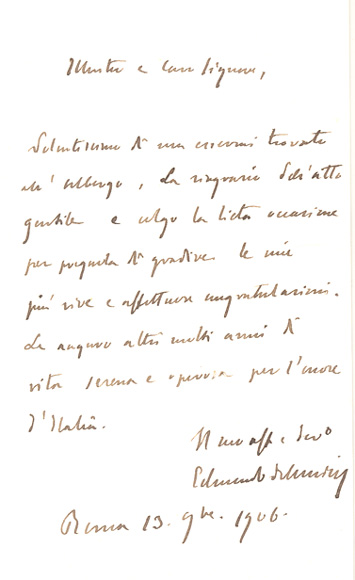 Illustre e caro Signore,
Dolentissimo di non essermi trovato
all'albergo, La ringrazio dell'atto
gentile e colgo la lieta occasione
per pregarla di gradire le mie
più vive e affettuose congratulazioni.
Le auguro altri molti anni di
vita serena e operosa per l'onore
d'Italia.
Il suo aff. e dev.o
Edmondo
Roma 13. 9bre. 1906.